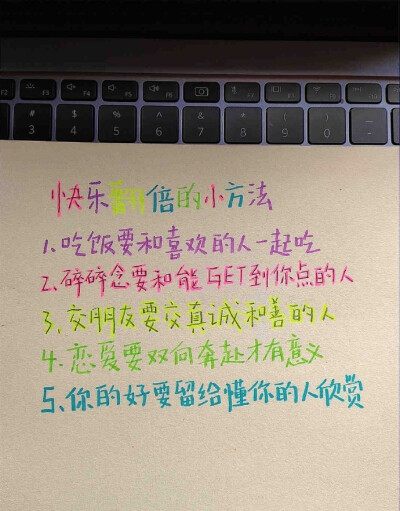 F2
F3
F4
F5
# 3
$ 4
% 5
^ 6
& 7
* 8
( 9
) 0
快乐翻倍的小方法
1.吃饭要和喜欢的人一起吃
2.碎碎念要和能GET到你点的人
3.交朋友要交真诚和善的人
4.恋爱要双向奔赴才有意义
5、你的好要留给懂你的人欣赏